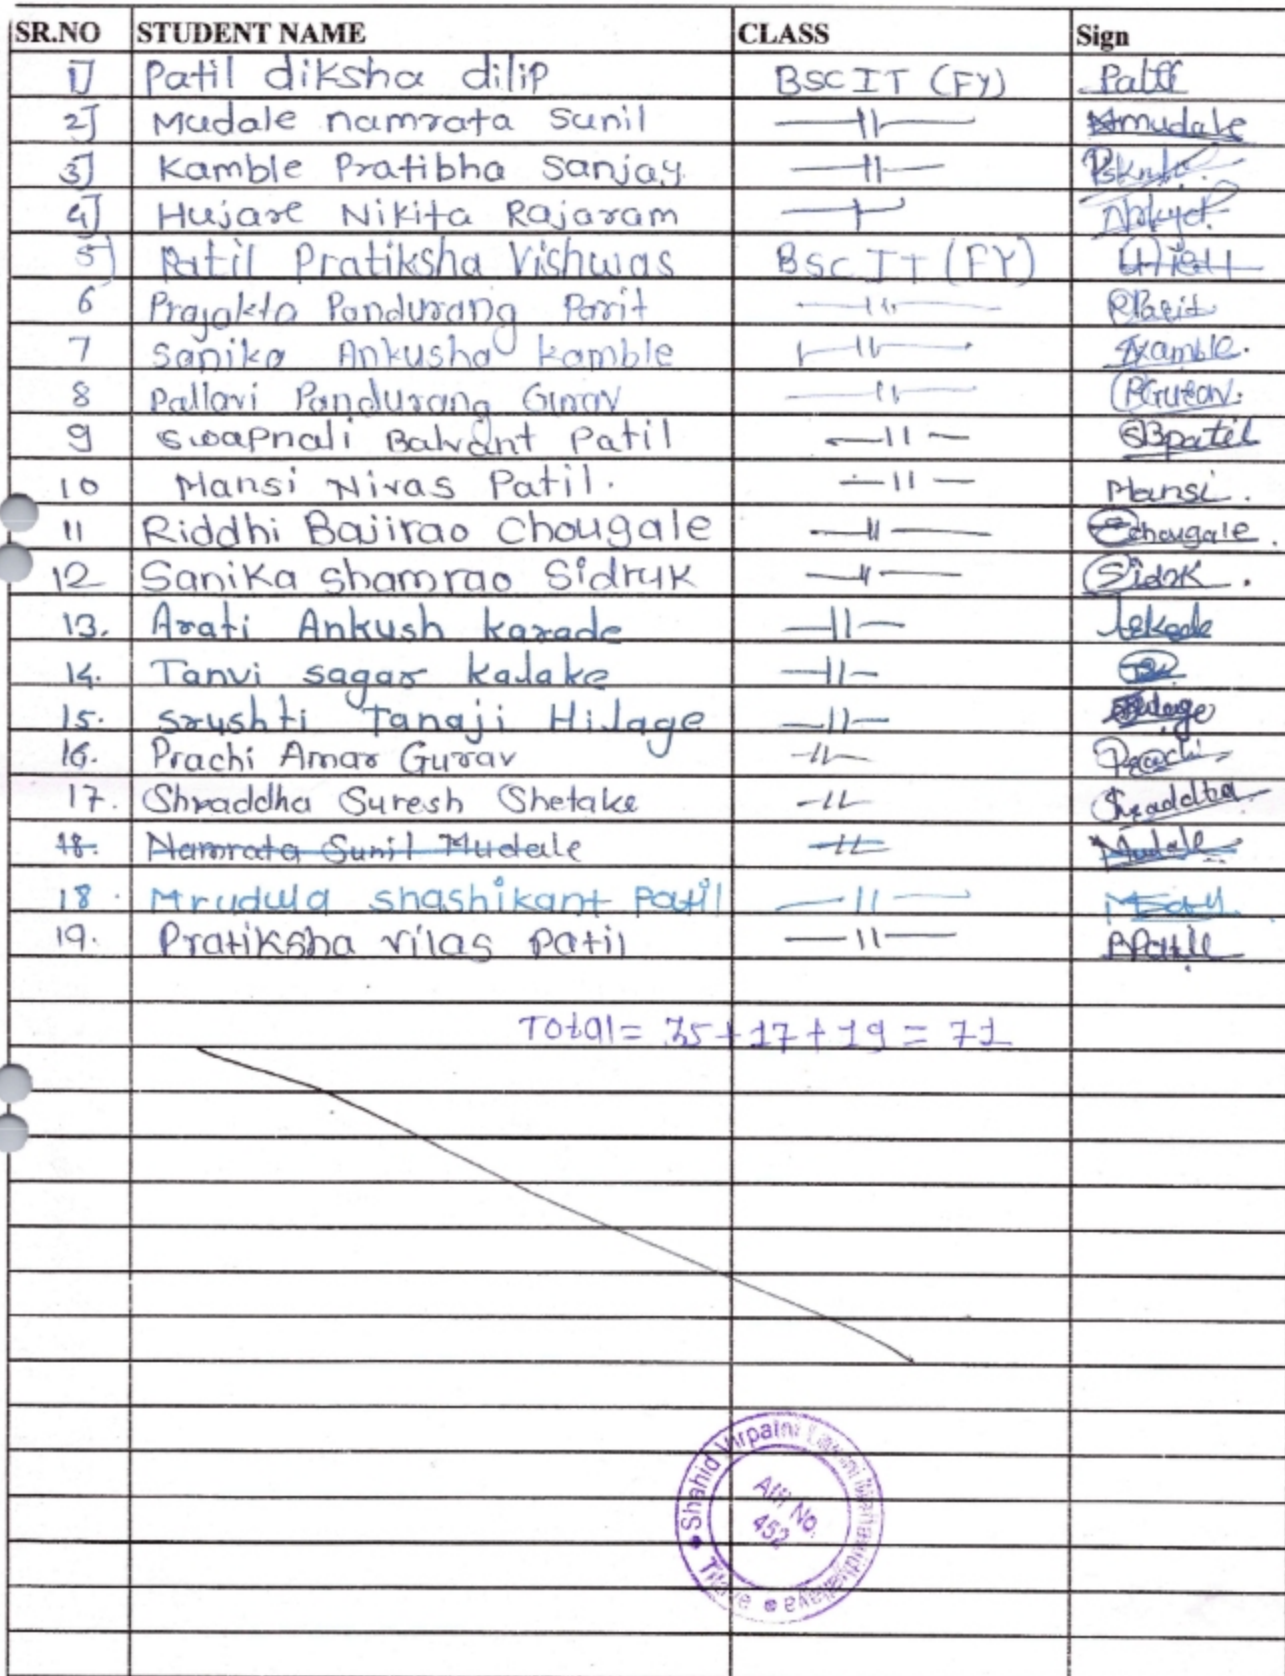 SR.NO STUDENT NAME CLASS Sign
1] Patil diksha dilip BSC IT (FY) Patil
2] Mudale namrata Sunil —||— Nmudale
3] Kamble Pratibha Sanjay —||—
4] Hujare Nikita Rajaram
5) Patil Pratiksha Vishwas BSC IT (FY)
6 Prajakta Pandurang Parit —||— PParit
7 Sanika Ankusha Kamble —||— Kamble.
8 Pallavi Pandurang Gurav —||— PGurav.
9 Swapnali Balvant Patil —||— SBpatil
10 Mansi Nivas Patil. —||— Mansi.
11 Riddhi Bajirao Chougale —||— chougale.
12 Sanika Shamrao Sidruk —||— Sidrk.
13. Arati Ankush karade —||—
14. Tanvi sagar kalake —||—
15. Srushti Tanaji Hilage —||— Hilage
16. Prachi Amar Gurav —||— Prachi
17. Shraddha Suresh Shetake —||— Shraddha
18. Namrata Sunil Mudale —||— Mudale
18. Mrudula shashikant Patil —||—
19. Pratiksha vilas Patil —||— PPatil
Total = 35 + 17 + 19 = 71
Shahid Virpatni Laxmi Mahavidyalaya Titave
Affi No.
452